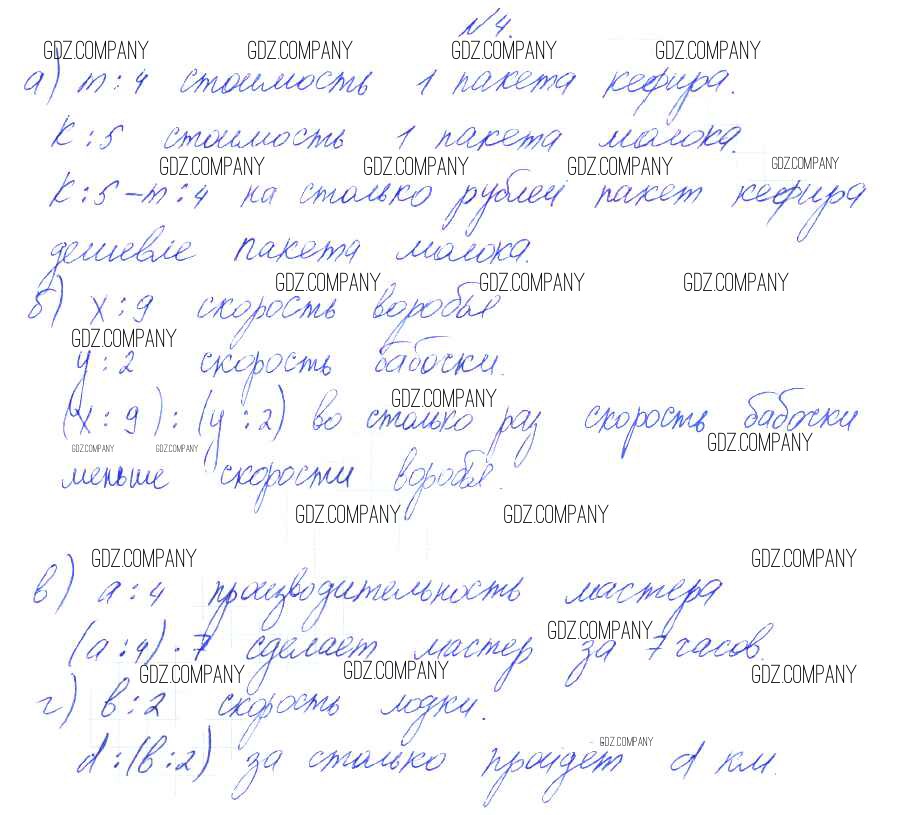 №4.
GDZ.COMPANY GDZ.COMPANY GDZ.COMPANY GDZ.COMPANY
а) m : 4 стоимость 1 пакета кефира.
k : 5 стоимость 1 пакета молока.
GDZ.COMPANY GDZ.COMPANY GDZ.COMPANY GDZ.COMPANY
k : 5 – m : 4 на столько рублей пакет кефира
дешевле пакета молока.
GDZ.COMPANY GDZ.COMPANY GDZ.COMPANY
б) x : 9 скорость воробья
GDZ.COMPANY
y : 2 скорость бабочки.
GDZ.COMPANY
(x : 9) : (y : 2) во столько раз скорость бабочки
GDZ.COMPANY GDZ.COMPANY GDZ.COMPANY
меньше скорости воробья.
GDZ.COMPANY GDZ.COMPANY
GDZ.COMPANY GDZ.COMPANY
в) a : 4 производительность мастера
GDZ.COMPANY
(a : 4) · 7 сделает мастер за 7 часов.
GDZ.COMPANY GDZ.COMPANY GDZ.COMPANY
г) b : 2 скорость лодки.
GDZ.COMPANY
d : (b : 2) за столько пройдет d км.